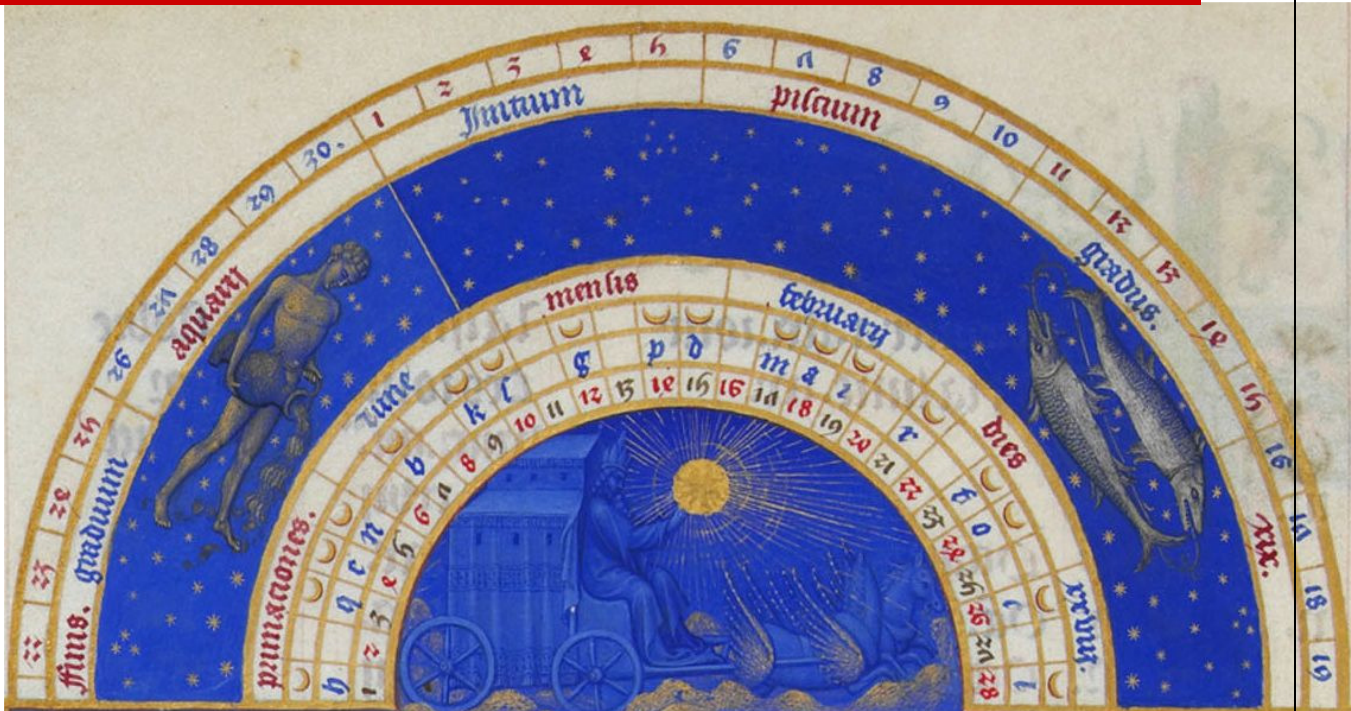 22 23 24 25 26 27 28 29 30. 1 2 3 4 5 6 7 8 9 10 11 12 13 14 15 16 17 18 19
ffinis. graduum aquarij Inicium piscium gradus. xx.
primaciones. lune mensis february dies xxviij.
q n b k g p d m a i r f o
1 2 3 4 5 6 7 8 9 10 11 12 13 14 15 16 17 18 19 20 21 22 23 24 25 26 27 28